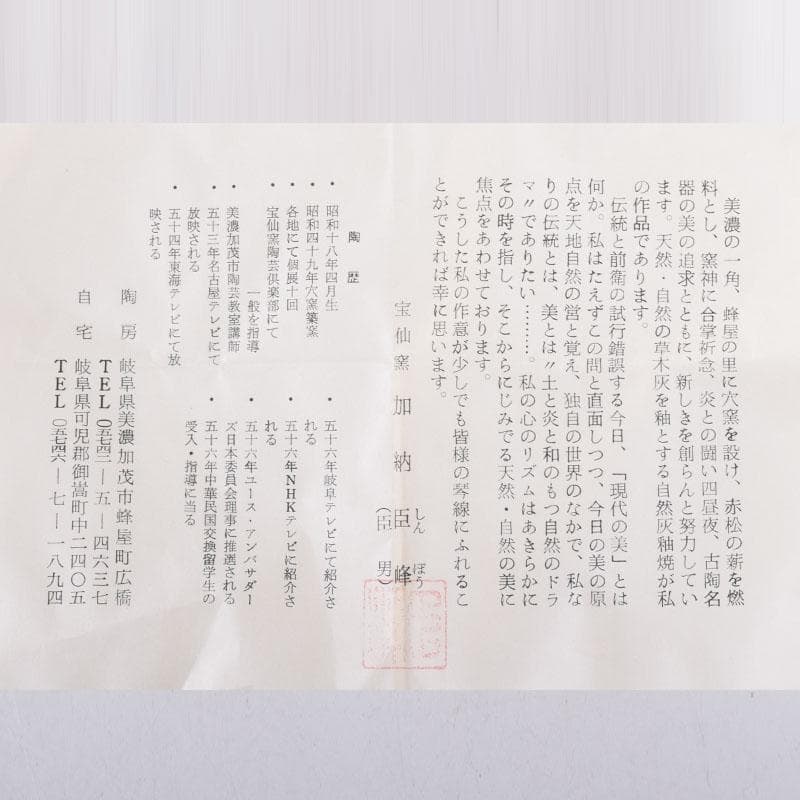 美濃の一角、蜂屋の里に穴窯を設け、赤松の薪を燃
料とし、窯神に合掌祈念、炎との闘い四昼夜、古陶名
器の美の追求とともに、新しきを創らんと努力してい
ます。天然・自然の草木灰を釉とする自然灰釉焼が私
の作品であります。
伝統と前衛の試行錯誤する今日、「現代の美」とは
何か。私はたえずこの問と直面しつつ、今日の美の原
点を天地自然の営と覚え、独自の世界のなかで、私な
りの伝統とは、美とは〃土と炎と和のもつ自然のドラ
マ〃でありたい………。私の心のリズムはあきらかに
その時を指し、そこからにじみでる天然・自然の美に
焦点をあわせております。
こうした私の作意が少しでも皆様の琴線にふれるこ
とができれば幸に思います。
宝仙窯 加納臣峰
しんぽう
（臣男）
陶歴
・昭和十八年四月生
・昭和四十九年穴窯築窯
・各地にて個展十回
・宝仙窯陶芸倶楽部にて
一般を指導
・美濃加茂市陶芸教室講師
・五十三年名古屋テレビにて
放映される
・五十四年東海テレビにて放
映される
・五十六年岐阜テレビにて紹介さ
れる
・五十六年NHKテレビに紹介さ
れる
・五十六年ユース・アンバサダー
ズ日本委員会理事に推選される
・五十六年中華民国交換留学生の
受入・指導に当る
陶房 岐阜県美濃加茂市蜂屋町広橋
TEL（〇五七四二―五―四六三七
自宅 岐阜県可児郡御嵩町中二四〇五
TEL（〇五七四六―七―一八九四